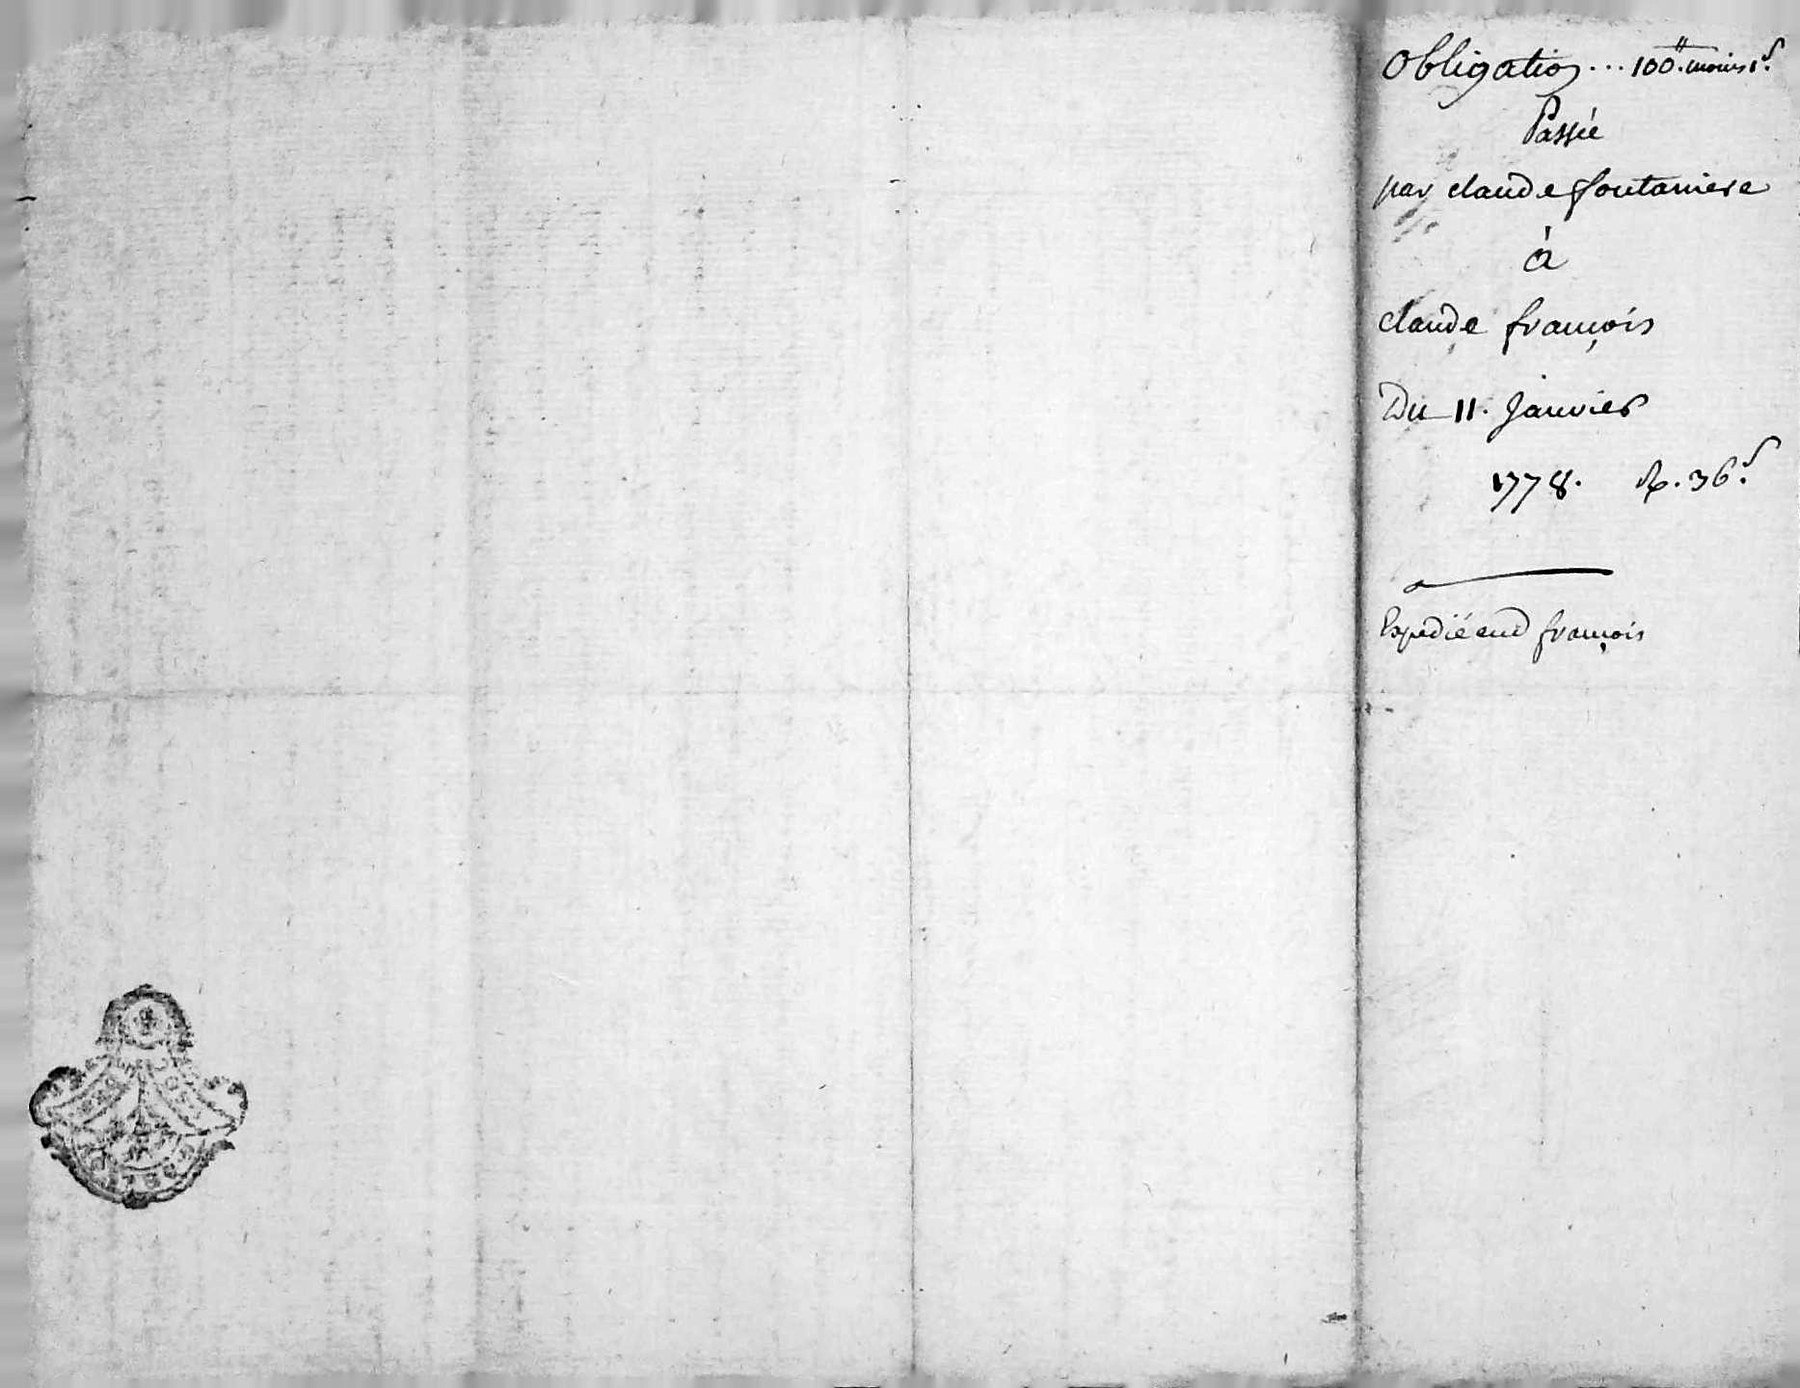 Obligation ... 100.# moins 1.s
Passée
par claude fontaniere
à
claude françois
Du 11. Janvier
1778. R. 36.s
Expedié aud françois